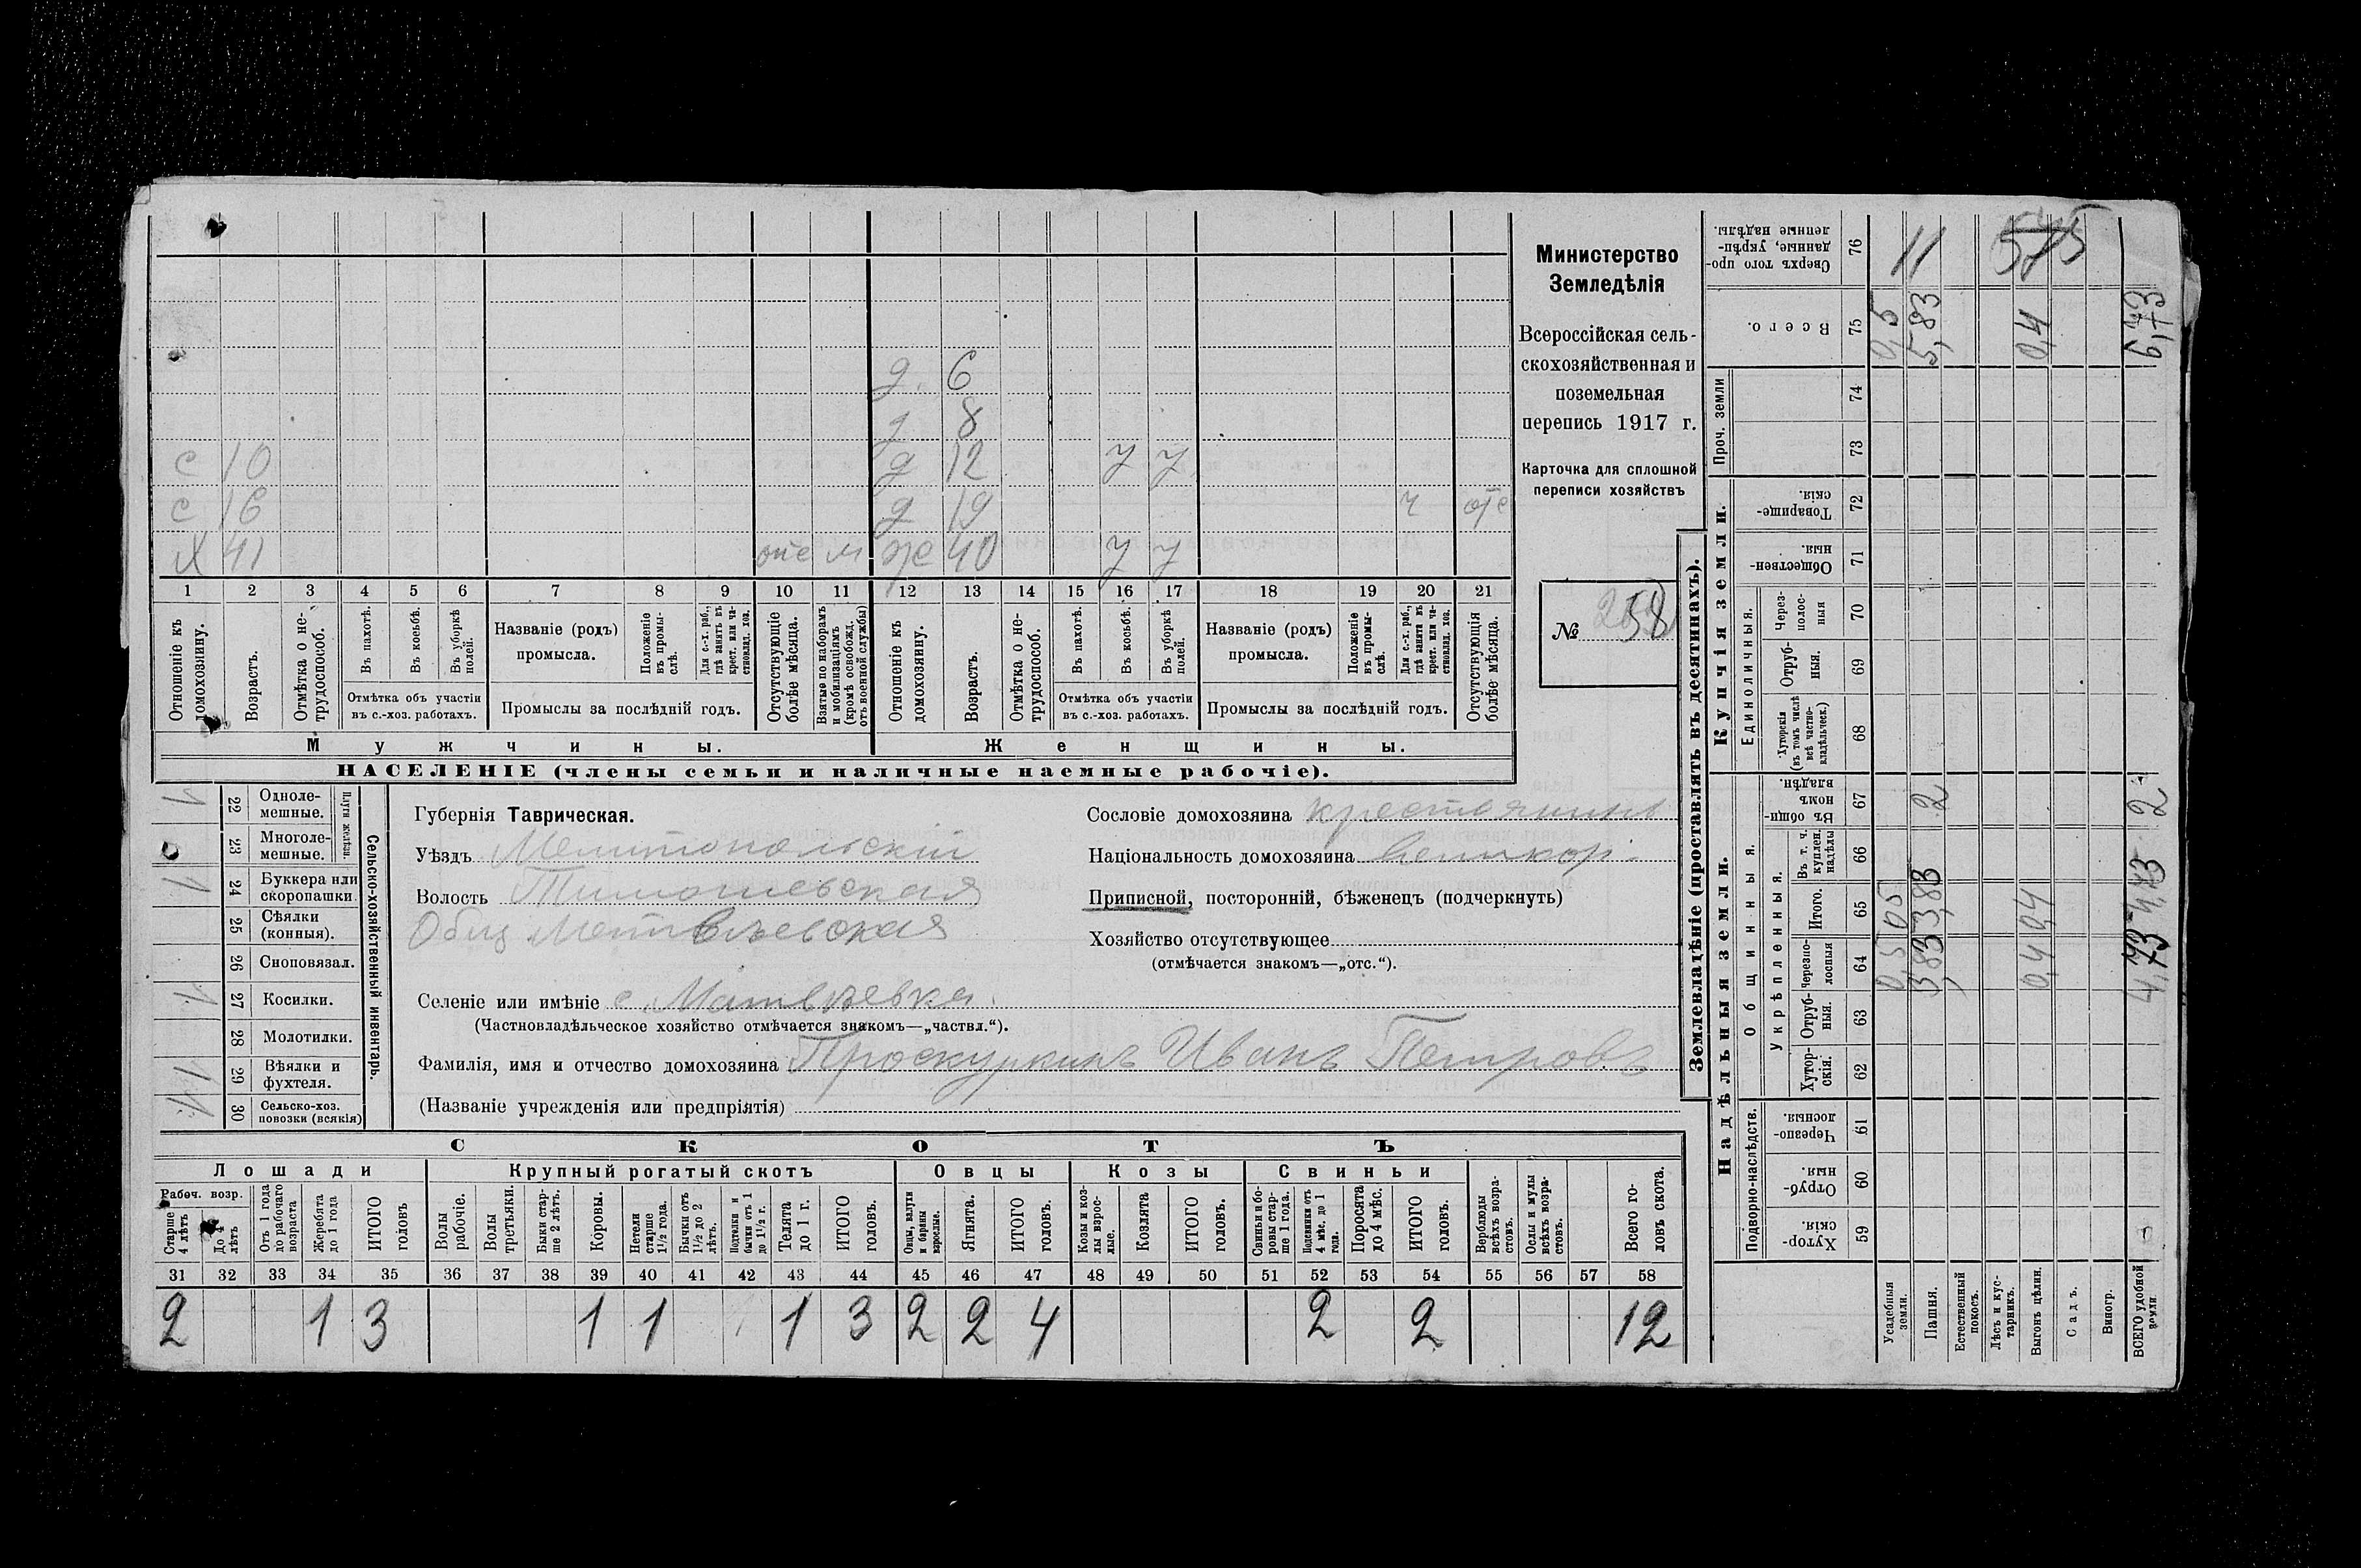 д. 6
д 8
с 10 д 12 у у
с 16 д 19 ч отс
Х 41 отс м ж 40 у у
1 2 3 4 5 6 7 8 9 10 11 12 13 14 15 16 17 18 19 20 21
Отношеніе къ домохозяину.
Возрастъ.
Отмѣтка о не-
трудоспособ.
Въ пахотѣ.
Въ косьбѣ.
Въ уборкѣ полей.
Отмѣтка объ участіи
въ с.-хоз. работахъ.
Названіе (родъ)
промысла.
Положеніе въ промы-
слѣ.
Для с.-х. раб., гдѣ занятъ въ крест. или ча-
стновлад. хоз.
Промыслы за послѣдній годъ.
Отсутствующіе
болѣе мѣсяца.
Взятые по наборамъ
и мобилизаціямъ
(кромѣ освобожд.
отъ военной службы)
Отношеніе къ
домохозяину.
Возрастъ.
Отмѣтка о не-
трудоспособ.
Въ пахотѣ.
Въ косьбѣ.
Въ уборкѣ полей.
Отмѣтка объ участіи
въ с.-хоз. работахъ.
Названіе (родъ)
промысла.
Положеніе въ промы-
слѣ.
Для с.-х. раб., гдѣ занята въ крест. или ча-
стновлад. хоз.
Промыслы за послѣдній годъ.
Отсутствующія
болѣе мѣсяца.
Мужчины. Женщины.
НАСЕЛЕНІЕ (члены семьи и наличные наемные рабочіе).
Министерство
Земледѣлія
Всероссійская сель-
скохозяйственная и
поземельная
перепись 1917 г.
Карточка для сплошной
переписи хозяйствъ
№ 58
Сельско-хозяйственный инвентарь.
Плуги желѣзн.
1 22 Одноле-
мешные.
23 Многоле-
мешные.
1 24 Буккера или
скоропашки
25 Сѣялки
(конныя).
26 Сноповязал.
1 27 Косилки.
28 Молотилки.
1 29 Вѣялки и
фухтеля.
1 30 Сельско-хоз.
повозки (всякія)
Губернія Таврическая.
Уѣздъ Мелитопольскій
Волость Тимошевская
Общ Матвѣевская
Селеніе или имѣніе с Матвѣевка
(Частновладѣльческое хозяйство отмѣчается знакомъ—„частвл.“).
Фамилія, имя и отчество домохозяина Проскуркинъ Иванъ Петровъ
(Названіе учрежденія или предпріятія)
Сословіе домохозяина крестьянинъ
Національность домохозяина великор.
Приписной, посторонній, бѣженецъ (подчеркнуть)
Хозяйство отсутствующее
(отмѣчается знакомъ—„отс.“).
СКОТЪ
Лошади Крупный рогатый скотъ Овцы Козы Свиньи
Рабоч. возр.
Старше 4 лѣтъ
До 4 лѣтъ
Отъ 1 года до рабочаго возраста
Жеребята до 1 года
ИТОГО головъ
Волы рабочіе.
Волы третьяки.
Быки стар-
ше 2 лѣтъ.
Коровы.
Нетели старше 1½ года.
Бычки отъ 1½ до 2 лѣтъ.
Подтелки и бычки отъ 1 до 1½ г.
Телята до 1 г.
ИТОГО головъ.
Овцы, валухи и бараны взрослые.
Ягнята.
ИТОГО головъ.
Козы и коз-
лы взрос-
лые.
Козлята
ИТОГО головъ.
Свиньи и бо-
ровы стар-
ше 1 года.
Подсвинки отъ 4 мѣс. до 1 года.
Поросята до 4 мѣс.
ИТОГО головъ.
Верблюды всѣхъ возра-
стовъ.
Ослы и мулы всѣхъ возра-
стовъ.
Всего го-
ловъ скота.
31 32 33 34 35 36 37 38 39 40 41 42 43 44 45 46 47 48 49 50 51 52 53 54 55 56 57 58
2 1 3 1 1 1 3 2 2 4 2 2 12
Землевладѣніе (проставлять въ десятинахъ).
Надѣльныя земли. Купчія земли. Проч. земли
Подворно-наслѣдств. Общинныя. Единоличныя.
Укрѣпленныя.
Хутор-
скія. 59
Отруб-
ныя. 60
Черезпо-
лосныя. 61
Хутор-
скія. 62
Отруб-
ныя. 63
Черезпо-
лосныя 64
Итого. 65
Въ т. ч. куплен. надѣлы 66
Въ общи-
номъ владѣн. 67
Хуторскія (въ томъ числѣ всѣ частно-
владѣльческ.) 68
Отруб-
ныя. 69
Через-
полос-
ныя 70
Обществен-
ныя. 71
Товарище-
скія. 72
73
74
Всего. 75
Сверхъ того про-
данные, укрѣп-
ленные надѣлы. 76
Усадебныя земли. 0,5 0,5 0,5
Пашня. 3,83 3,83 2 5,83 11
Естественный покосъ.
Лѣсъ и кус-
тарникъ.
Выгонъ цѣлин. 0,4 0,4 0,4
Садъ.
Виногр.
ВСЕГО удобной земли. 4,73 4,73 2 6,73